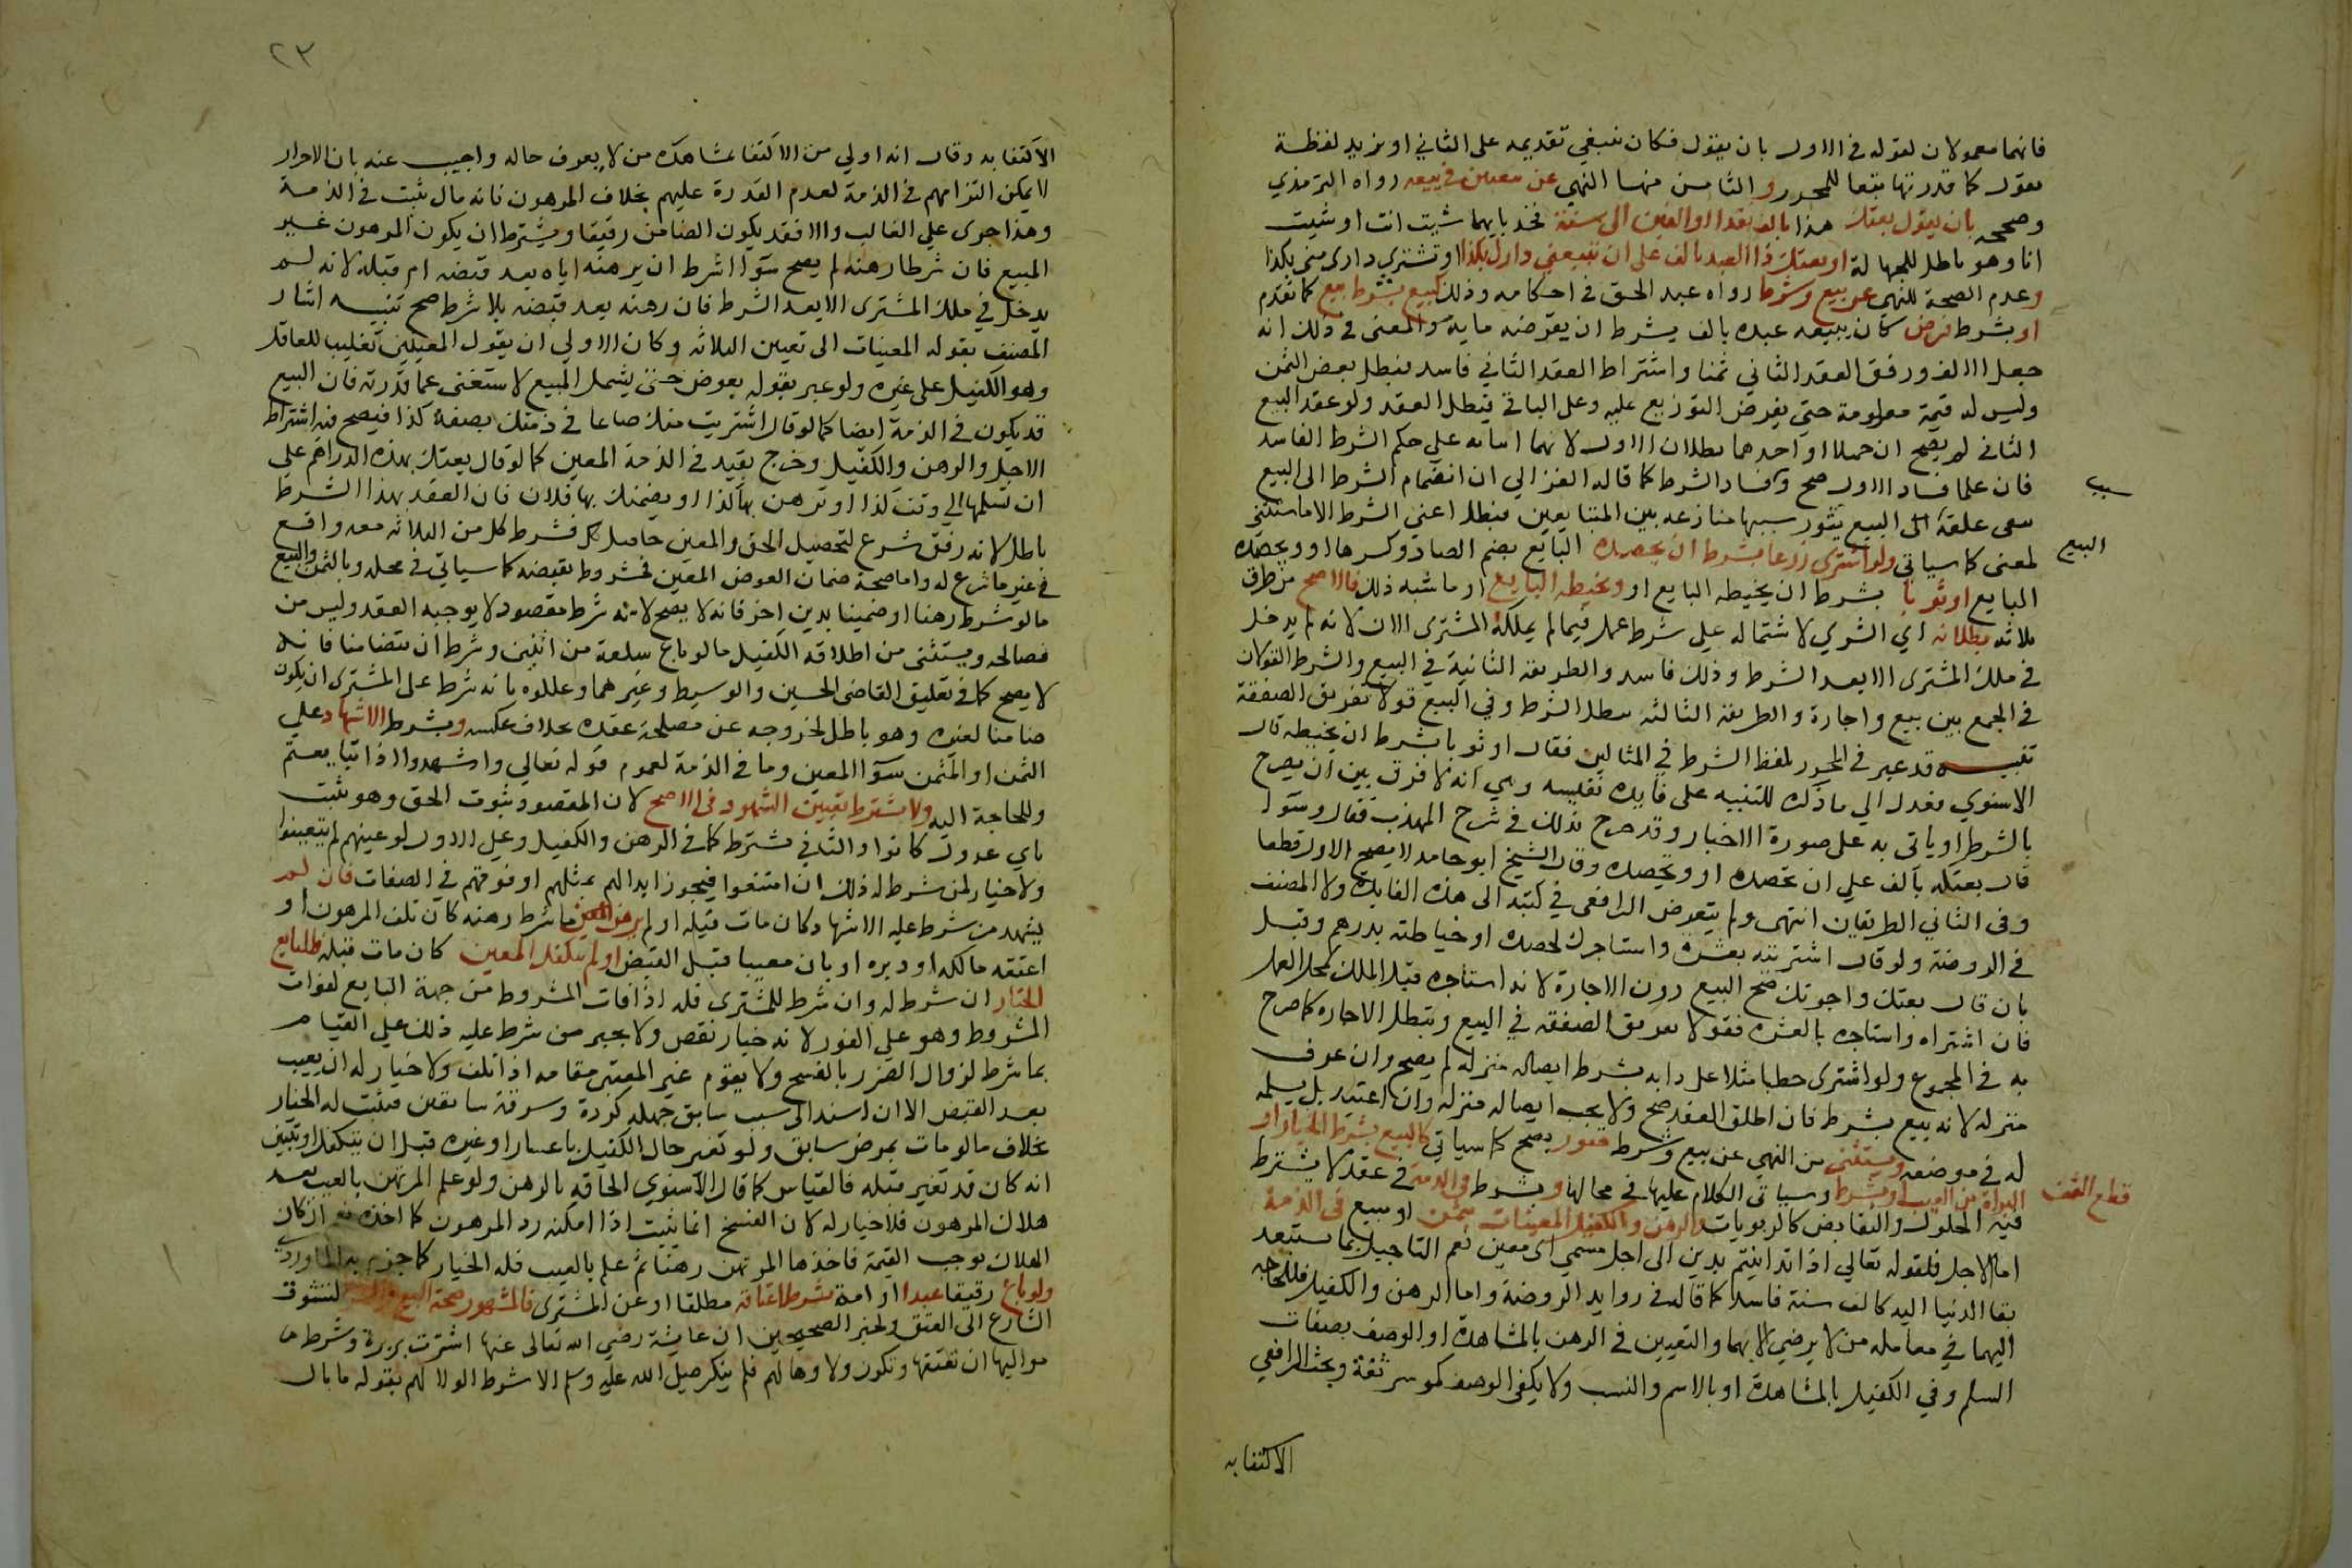 فانهما معمولان لقوله في الاول بان يقول فكان ينبغي تقديمه على الثاني او يزيد لفظة
يقول كما قدرتها تبعا للمحرر والثامن منها النهي عن بيعتين في بيعه رواه الترمذي
وصححه بان يقول بعتك هذا بالف نقدا او الفين الى سنة فخذ بايهما شيت انت او شيت
انا وهو باطل للجهالة او بعتك ذا العبد بالف على ان تبيعني دارك بكذا او تشتري داري مني بكذا
وعدم الصحة للنهي عن بيع وشرط رواه عبد الحق في احكامه وذلك كبيع بشرط بيع كما تقدم
او بشرط قرض كان يبيعه عبده بالف بشرط ان يقرضه ماية والمعنى في ذلك انه
جعل الالف ورفق العقد الثاني ثمنا واشتراط العقد الثاني فاسد فبطل بعض الثمن
وليس له قيمة معلومة حتى يفرض التوزيع عليه وعلى الباقي فبطل العقد ولو عقد البيع
الثاني لم يصح ان جهلا او احدهما بطلان الاول لانهما اثبتاه على حكم الشرط الفاسد
فان علما فساد الاول صح وفساد الشرط كما قاله الغزالي ان انضمام الشرط الى البيع
سبب
يبقى علقة الى البيع يثور بسببها منازعة بين المتبايعين فبطل اعني الشرط الا ما استثني
البيع
لمعنى كما سياتي ولو اشترى زرعا بشرط ان يحصده البايع بضم الصاد وكسرها او ويحصده
البايع او ثوبا بشرط ان يخيطه البايع او ويخيطه البايع او ما شبه ذلك فالاصح من طرق
ثلاثه بطلانه اي الشري لاشتماله على شرط عمل فيما لم يملكه المشتري الان لانه لم يدخل
في ملك المشتري الا بعد الشرط وذلك فاسد والطريقة الثانية في البيع والشرط القولان
في الجمع بين بيع واجارة والطريقة الثالثة يبطل الشرط وفي البيع قولا تفريق الصفقة
تنبيه قد عبر في المحرر بلفظ الشرط في المثالين فقال او ثوبا بشرط ان يخيطه قال
الاسنوي فعدل الى ما ذكره للتنبيه على فايده نفيسه وهي انه لا فرق بين ان يصرح
بالشرط او ياتي به على صورة الاخبار وقد صرح بذلك في شرح المهذب فقال وسوا
قال بعتكه بالف على ان تحصده او وتحصده وقال الشيخ ابو حامد لا يصح الاول قطعا
وفي الثاني الطريقان انتهى ولم يتعرض الرافعي في كتبه الى هذه الفايدة ولا المصنف
في الروضة ولو قال اشتريته بعشرة واستاجرتك لحصده او خياطته بدرهم وقبل
بان قال بعتك واجرتك صح البيع دون الاجارة لانه استاجره قبل الملك لمحل العمل
فان اشتراه واستاجره بالعشره فقولا تفريق الصفقه في البيع وتبطل الاجاره كما صرح
به في المجموع ولو اشترى حطبا مثلا على دابه بشرط ايصاله منزله لم يصح وان عرف
منزله لانه بيع بشرط فان اطلق العقد صح ولا يجب ايصاله منزله وان اعتيد بل يسلمه
له في موضعه ويستثنى من النهي عن بيع وشرط صور يصح كما سياتي كالبيع بشرط الخيار او
البراة من العيب او بشرط قطع الثمر وسياتي الكلام عليها في محالها وبشرط في الذمة في عقد لا يشترط
فيه الحلول والتقابض كالربويات والرهن والكفيل المعينات بثمن او مبيع في الذمة
اما الاجل فلقوله تعالى اذا تداينتم بدين الى اجل مسمى اي معين نعم التاجيل بما يستبعد
بقا الدنيا اليه كالف سنة فاسد كما قاله في زوايد الروضة واما الرهن والكفيل فللحاجه
اليهما في معاملة من لا يرضى الا بهما والتعيين في الرهن بالمشاهدة او الوصف بصفات
السلم وفي الكفيل بالمشاهدة او بالاسم والنسب ولا يكفي الوصف كموسر ثقة وبحث الرافعي
الاكتفا به
٢٣
الاكتفا به وقال انه اولى من الاكتفا بمشاهدة من لا يعرف حاله واجيب عنه بان الاحرار
لا يمكن التزامهم في الذمة لعدم القدرة عليهم بخلاف المرهون فانه مال يثبت في الذمة
وهذا جرى على الغالب والا فقد يكون الضامن رقيقا ويشترط ان يكون المرهون غير
المبيع فان شرطا رهنه لم يصح سوا اشرط ان يرهنه اياه بعد قبضه ام قبله لانه لم
يدخل في ملك المشتري الا بعد الشرط فان رهنه بعد قبضه بلا شرط صح تنبيه اشار
المصنف بقوله المعينات الى تعيين الثلاثه وكان الاولى ان يقول المعينين تغليب للعاقل
وهو الكفيل على غيره ولو عبر بقوله بعوض حتى يشمل المبيع لاستغنى عما قدرته فان البيع
قد يكون في الذمة ايضا كما لو قال اشتريت منك صاعا في ذمتك بصفة كذا فيصح فيه اشتراط
الاجل والرهن والكفيل وخرج بقيد في الذمة المعين كما لو قال بعتك بهذه الدراهم على
ان تسلمها الي وقت كذا او ترهن بها كذا او يضمنك بها فلان فان العقد بهذا الشرط
باطل لانه رفق شرع لتحصيل الحق والمعين حاصل فشرط كل من الثلاثه معه واقع
في غير ما شرع له واما صحة ضمان العوض المعين فمشروط بقبضه كما سياتي في محله وبالثمن والمبيع
ما لو شرط رهنا او ضمينا بدين اخر فانه لا يصح لانه شرط مقصود لا يوجبه العقد وليس من
مصالحه ويستثنى من اطلاقه الكفيل ما لو باع سلعة من اثنين وشرط ان يتضامنا فانه
لا يصح كما في تعليق القاضي الحسين والوسيط وغيرهما وعللوه بانه شرط على المشتري ان يكون
ضامنا لغيره وهو باطل لخروجه عن مصلحة عقده بخلاف عكسه وبشرط الاشهاد على
الثمن او المثمن سوا المعين وما في الذمة لعموم قوله تعالى واشهدوا اذا تبايعتم
وللحاجة اليه ولا يشترط تعيين الشهود في الاصح لان المقصود ثبوت الحق وهو يثبت
باي عدول كانوا والثاني يشترط كما في الرهن والكفيل وعلى الاول لو عينهم لم يتعينوا
ولا خيار لمن شرط له ذلك ان امتنعوا فيجوز ابدالهم بمثلهم او فوقهم في الصفات فان لم
يشهد من شرط عليه الاشهاد كان مات قبله او لم يرهن ما شرط رهنه كان تلف المرهون او
اعتقه مالكه او دبره او بان معيبا قبل القبض او لم يتكفل المعين كان مات قبله فللبايع
الخيار ان شرط له وان شرط للمشتري فله اذا فات المشروط من جهة البايع لفوات
المشروط وهو على الفور لانه خيار نقص ولا يجبر من شرط عليه ذلك على القيام
بما شرط لزوال الضرر بالفسخ ولا يقوم غير المعين مقامه اذا تلف ولا خيار له ان يعيب
بعد القبض الا ان استند الى سبب سابق جهله كردة وسرقة سابقين فيثبت له الخيار
بخلاف ما لو مات بمرض سابق ولو تغير حال الكفيل باعسار او غيره قبل ان يتكفل او تبين
انه كان قد تغير قبله فالقياس كما قال الاسنوي الحاقه بالرهن ولو علم المرتهن بالعيب بعد
هلاك المرهون فلا خيار له لان الفسخ انما يثبت اذا امكنه رد المرهون كما اخذه نعم ان كان
الهلاك يوجب القيمة فاخذها المرتهن رهنا ثم علم بالعيب فله الخيار كما جزم به الماوردي
ولو باع رقيقا عبدا او امة بشرط اعتاقه مطلقا او عن المشتري فالمشهور صحة البيع لتشوف
الشارع الى العتق ولخبر الصحيحين ان عايشة رضي الله تعالى عنها اشترت بريرة وشرط
مواليها ان تعتقها ويكون ولاوها لهم فلم ينكر صلى الله عليه وسلم الا شرط الولا لهم بقوله ما بال